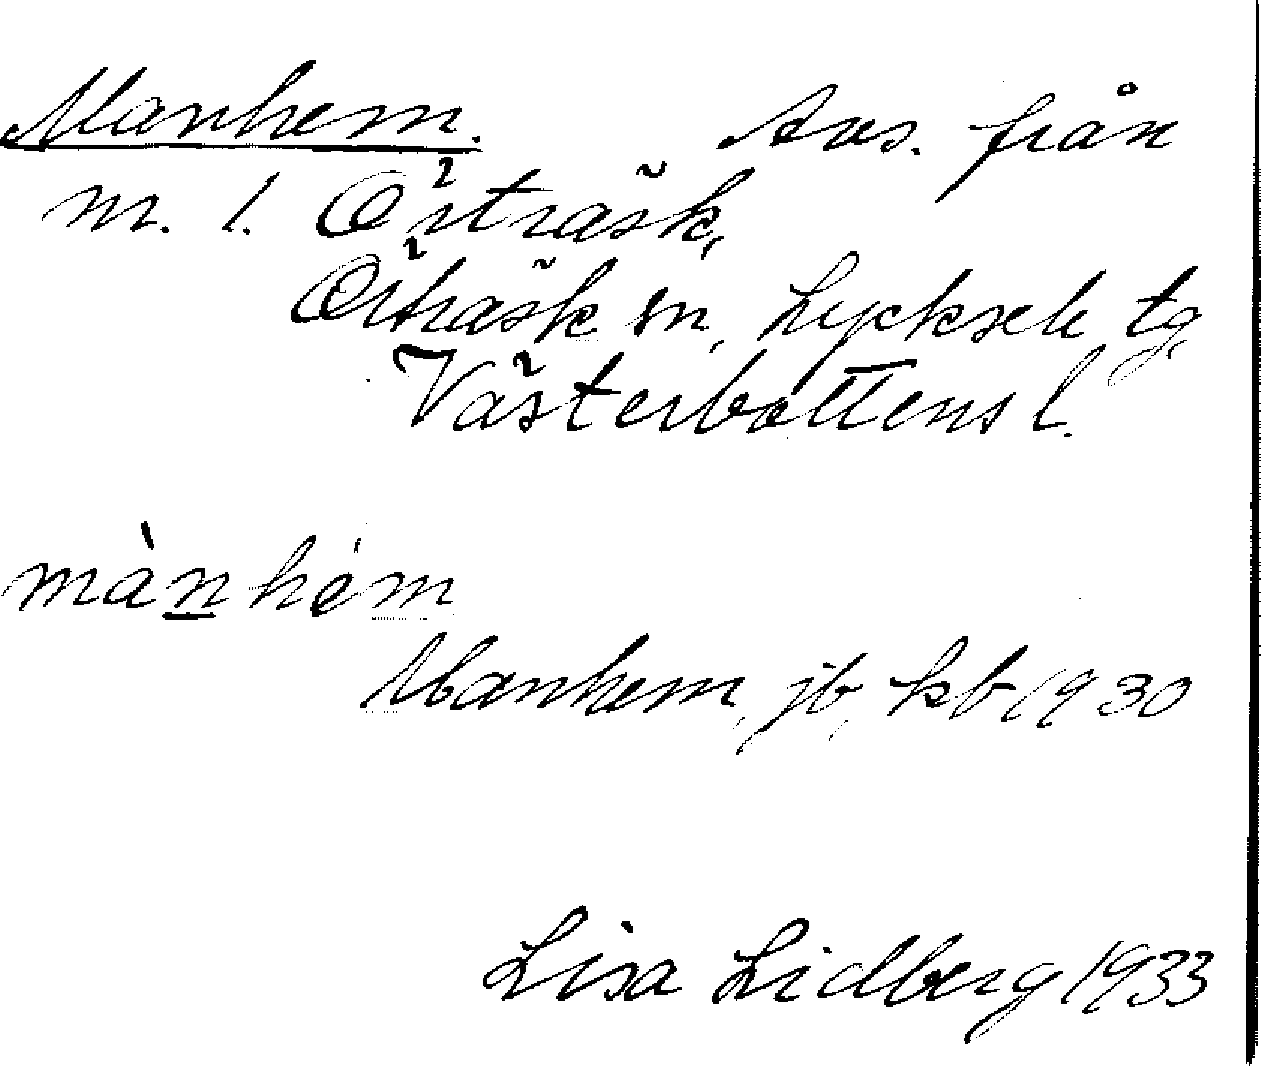 Manhem. Avs. från
m. 1. Örträsk,
Örträsk sn, Lycksele tg,
Västerbottens l.
mànhém
Manhem, jb, kb 1930
Lisa Lidberg 1933